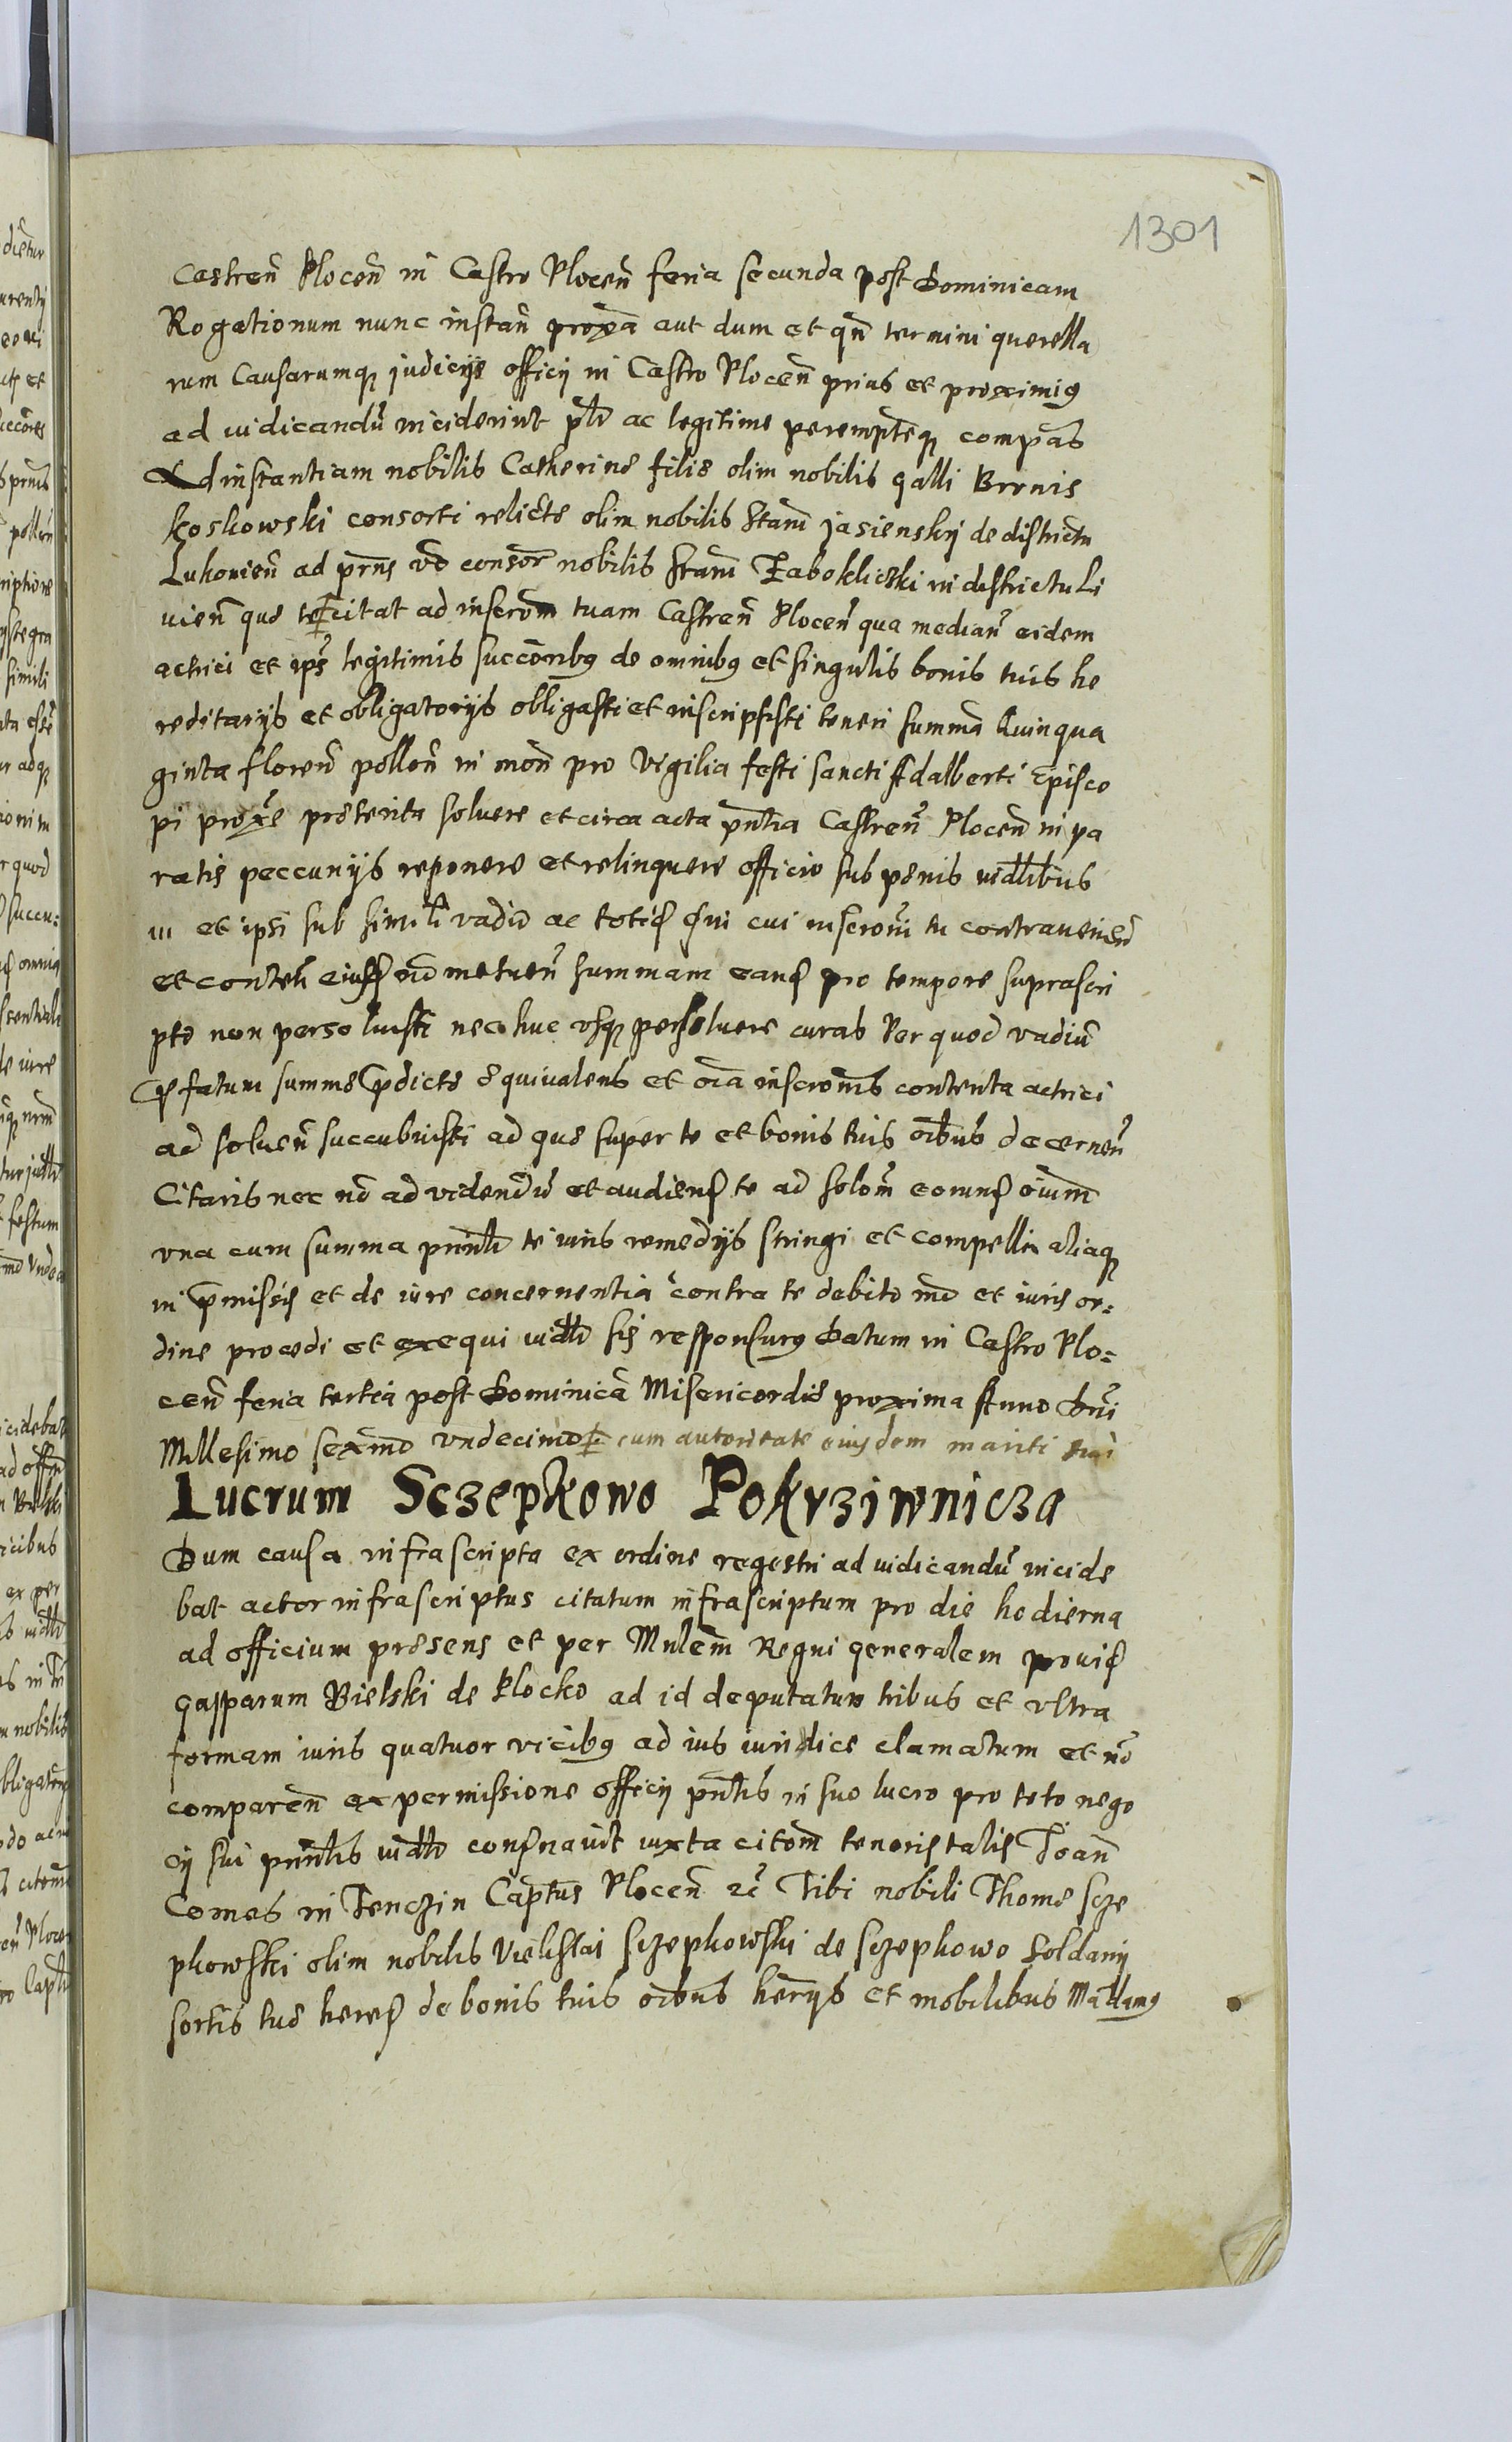 1301
Castren̄ Plocen̄ in Castro Plocen̄ feria secunda post Dominicam
Rogationum nunc instan̄ proxā aut dum et qn̄ termini querella
rum Causarumq̄ judicijs officij in Castro Plocen̄ prius et proximiꝰ
ad iudicandū inciderint ꝑlr̄ ac legitime peremptēq̄ compās
Ad instantiam nobilis Catherine filie olim nobilis Galli Bronis
koskowski consorti relicte olim nobilis Stanī Jasienskij de districtu
Lukovien̄ ad pr̄ns vō consor̄ nobilis Stanī Zaboklicski in districtu Li
vien̄ que te citat ad inscrōm tuam Castren̄ Plocen̄ qua median̄ eidem
actrici et ips̄ legitimis succōribꝰ de omnibꝰ et singulis bonis tuis he
reditarijs et obligatorijs obligasti et inscripsisti teneri summā Quinqua
ginta floren̄ pollon̄ in mon̄ pro Vigilia festi sancti Adalberti Episco
pi proxē preterita soluere et circa acta pn̄tia Castren̄ Plocen̄ in pa
ratis peccunijs reponere et relinquere officio sub penis iudlibus
et ipsi sub simili vadio ac toti cui inscrōni tu contraveniēn̄
et conten̄ eiusd̄ metuen̄ summam eand̄ pro tempore suprascri
pto non persoluisti nec huc vsq̄ persoluere curas Per quod vadiū
p̄fatum summe p̄dicte equivalens et oīa inscrōnis contenta actrici
ad soluen̄ succubuisti ad que super te et bonis tuis oībus decernen̄
Citaris nec nō ad videndū et audiend̄ te ad solōm eorund̄ oīum
vna cum summa prīnli te iuris remedijs stringi et compelli aliaq̄
in p̄missis et de iure concernentia contra te debito mō et iuris or=
dine procedi et exequi iudlr̄ sis responsurꝰ Datum in Castro Plo=
cen̄ feria tertia post Dominicā Misericordie proxima Anno Dn̄i
Millesimo sexmō vndecimo cum autoritate eiusdem mariti tui
Lucrum Sczepkowo Pokrziwnicza
Dum causa infrascripta ex ordine regestri ad iudicandū incide
bat actor infrascriptus citatum infrascriptum pro die hodierna
ad officium presens et per Mnlem̄ Regni generalem provid̄
Gasparum Bielski de Plocko ad id deputatum tribus et vltra
formam iuris quatuor vicibꝰ ad ius iuridice clamatum et nō
comparen̄ ex permissione officij pn̄tis in suo lucro pro toto nego
cij sui prīnlis iudlr̄ consnavit iuxta citōm tenoris talis Joan̄
Comes in Tenczin Captus Plocen̄ rc̄ Tibi nobili Thome Scze
pkowski olim nobilis Vielislai Sczepkowski de Sczepkowo Soldanij
sortis tue hered̄ de bonis tuis oībus herijs et mobilibus Mādamꝰ